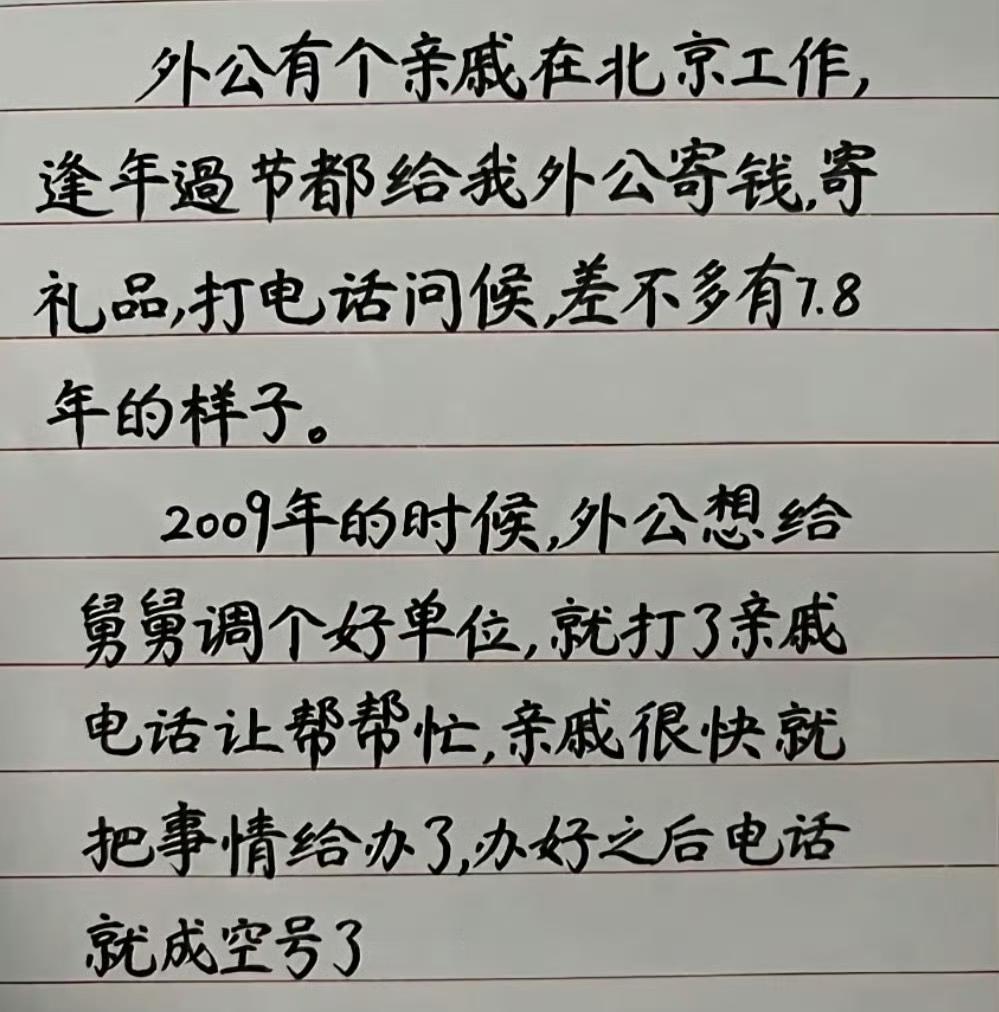 外公有个亲戚在北京工作,
逢年過节都给我外公寄钱,寄
礼品,打电话问候,差不多有7.8
年的样子。
2009年的时候,外公想给
舅舅调个好单位,就打了亲戚
电话让帮帮忙,亲戚很快就
把事情给办了,办好之后电话
就成空号了